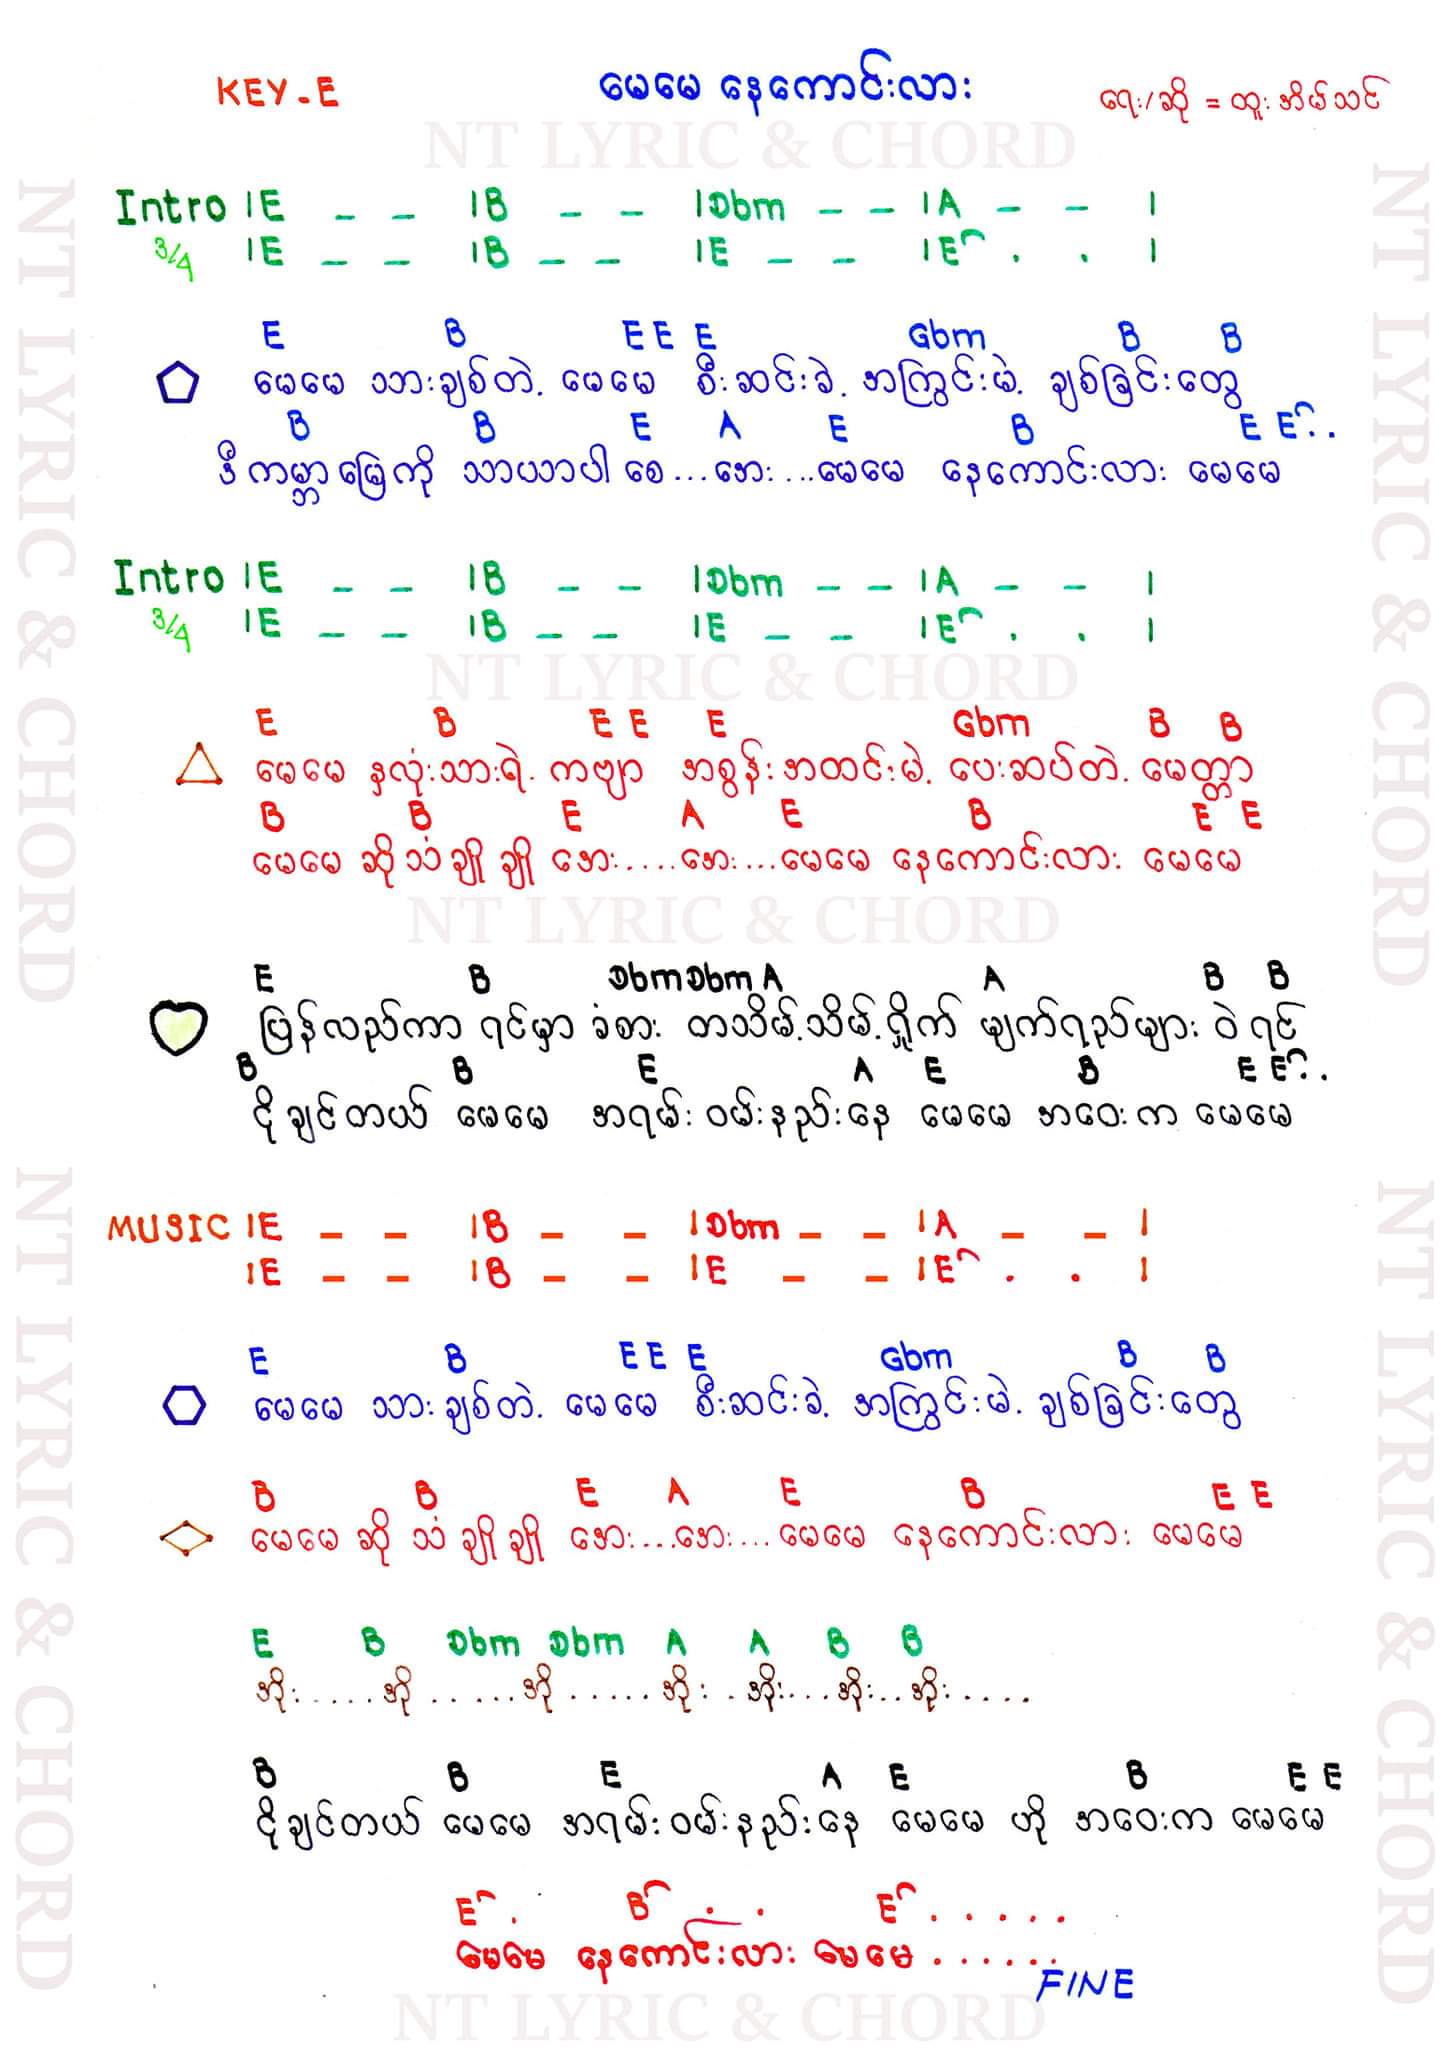 KEY-E
မေမေ နေကောင်းလား
ရေး/ဆို = ထူးအိမ်သင်
NT LYRIC & CHORD
Intro |E _ _ |B _ _ |Dbm _ _ |A _ _ |
3/4 |E _ _ |B _ _ |E _ _ |E . . |
E B E E E Gbm B B
မေမေ သားချစ်တဲ့ မေမေ စီးဆင်းခဲ့ အကြွင်းမဲ့ ချစ်ခြင်းတွေ
B B E A E B E E . .
ဒီကမ္ဘာမြေကို သာယာပါ စေ...အေး...မေမေ နေကောင်းလား မေမေ
Intro |E _ _ |B _ _ |Dbm _ _ |A _ _ |
3/4 |E _ _ |B _ _ |E _ _ |E . . |
NT LYRIC & CHORD
E B E E E Gbm B B
မေမေ နှလုံးသားရဲ့ ကဗျာ အစွန်းအထင်းမဲ့ ပေးဆပ်တဲ့ မေတ္တာ
B B E A E B E E
မေမေ ဆိုသံချိုချို အေး....အေး...မေမေ နေကောင်းလား မေမေ
NT LYRIC & CHORD
E B Dbm Dbm A A B B
ပြန်လည်ကာ ရင်မှာ ခံစား တသိမ့်သိမ့်ရှိုက် မျက်ရည်များ ဝဲ ရင်
B B E A E B E E . .
ငိုချင်တယ် မေမေ အရမ်းဝမ်းနည်းနေ မေမေ အဝေးက မေမေ
MUSIC |E _ _ |B _ _ |Dbm _ _ |A _ _ |
|E _ _ |B _ _ |E _ _ |E . . |
E B E E E Gbm B B
မေမေ သားချစ်တဲ့ မေမေ စီးဆင်းခဲ့ အကြွင်းမဲ့ ချစ်ခြင်းတွေ
B B E A E B E E
မေမေ ဆိုသံချိုချို အေး...အေး...မေမေ နေကောင်းလား မေမေ
E B Dbm Dbm A A B B
အိုး.....အို......အို.....အိုး..အိုး...အိုး..အိုး....
B B E A E B E E
ငိုချင်တယ် မေမေ အရမ်းဝမ်းနည်းနေ မေမေ ဟို အဝေးက မေမေ
E . B . . E . . . . .
မေမေ နေကောင်းလား မေမေ......
FINE
NT LYRIC & CHORD
NT LYRIC & CHORD
NT LYRIC & CHORD
NT LYRIC & CHORD
NT LYRIC & CHORD